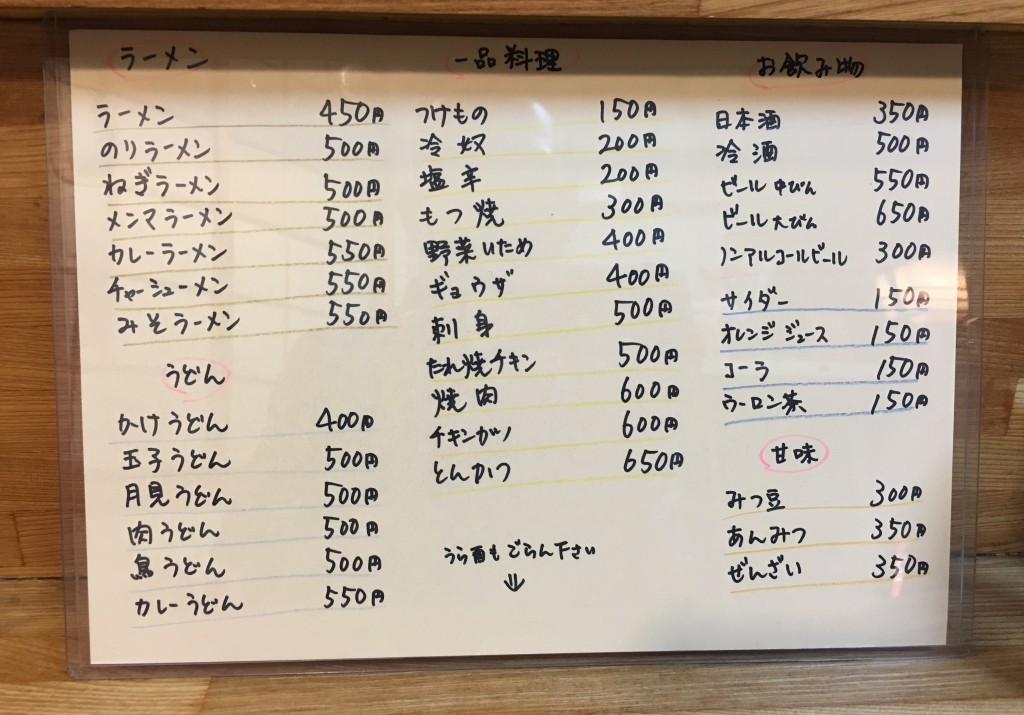 ラーメン
ラーメン 450円
のりラーメン 500円
ねぎラーメン 500円
メンマラーメン 500円
カレーラーメン 550円
チャーシューメン 550円
みそラーメン 550円
うどん
かけうどん 400円
玉子うどん 500円
月見うどん 500円
肉うどん 500円
鳥うどん 500円
カレーうどん 550円
一品料理
つけもの 150円
冷奴 200円
塩辛 200円
もつ焼 300円
野菜いため 400円
ギョウザ 400円
刺身 500円
たれ焼チキン 500円
焼肉 600円
チキンカツ 600円
とんかつ 650円
うら面もごらん下さい
↓
お飲み物
日本酒 350円
冷酒 500円
ビール中びん 550円
ビール大びん 650円
ノンアルコールビール 300円
サイダー 150円
オレンジジュース 150円
コーラ 150円
ウーロン茶 150円
甘味
みつ豆 300円
あんみつ 350円
ぜんざい 350円